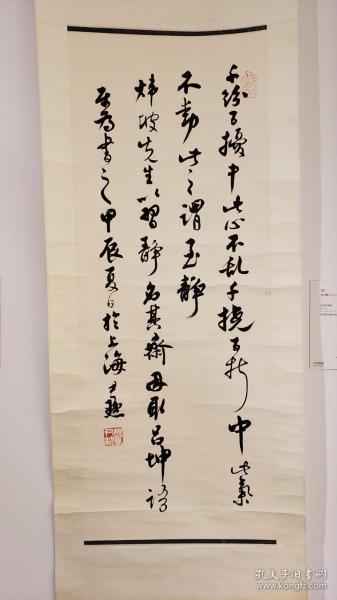 千紛百擾中此心不乱千撓百折中此氣
不動此之謂至靜
煒坡先生以習靜名其齋因取呂坤語
属為書之甲辰夏日於上海尹默
孔夫子旧书网
kongfz.com